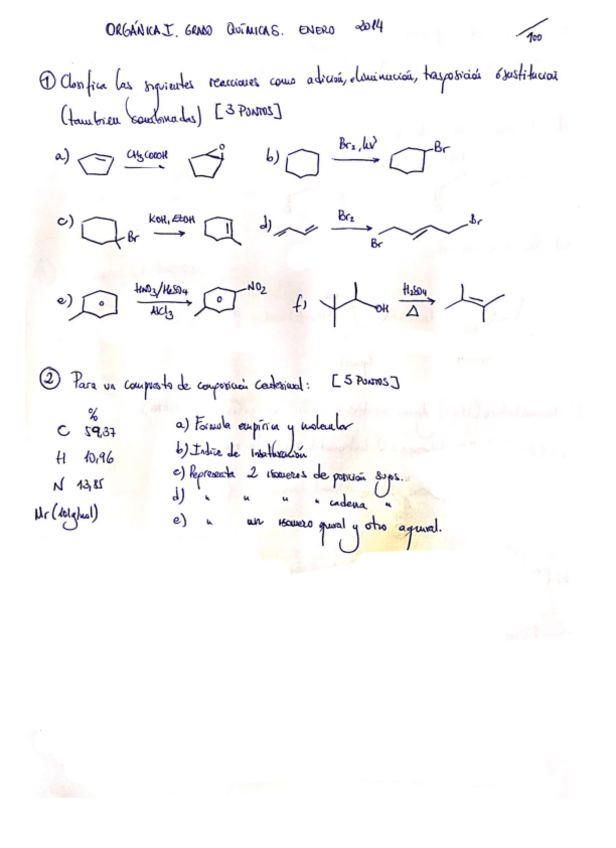 ORGÁNICA I. GRADO QUÍMICAS. ENERO 2014
/100
① Clasifica las siguientes reacciones como adición, eliminación, trasposición ó sustitución
(tambien combinadas) [3 PUNTOS]
a) CH3COOOH O b) Br2, hν Br
c) Br KOH, EtOH d) Br2 Br Br
e) HNO3/H2SO4 AlCl3 NO2 f) OH H2SO4 Δ
② Para un compuesto de composición centesimal: [5 PUNTOS]
%
C 59,37 a) Fórmula empírica y molecular
H 10,96 b) Indice de insaturación
N 13,85 c) Representa 2 isomeros de posición sups.
Mr (101g/mol) d) " " " " cadena "
e) " un isomero quiral y otro aquiral.